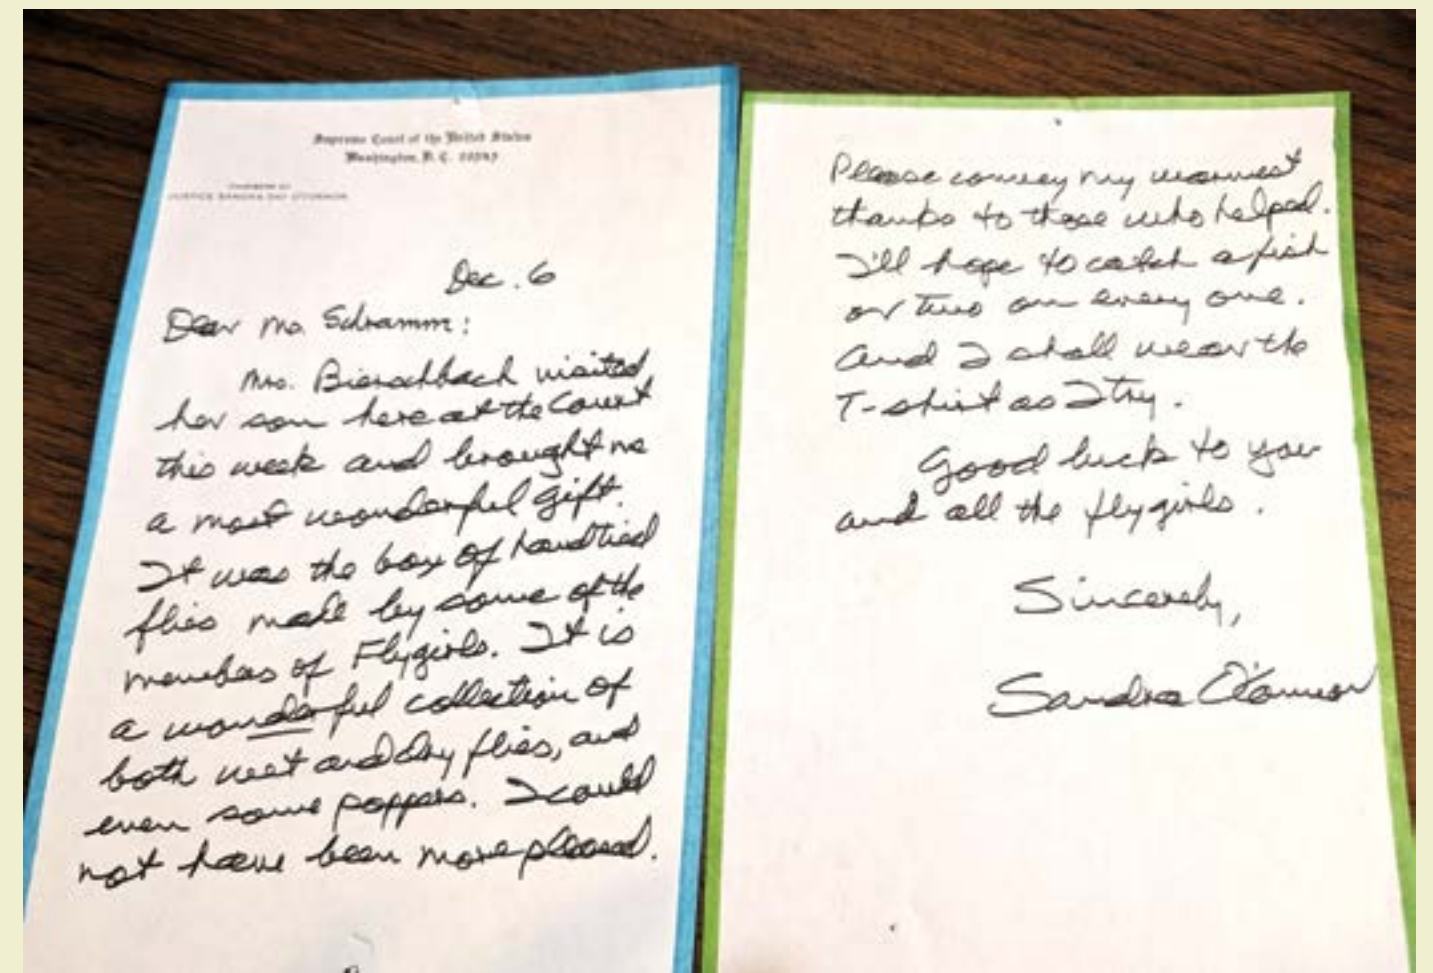 Supreme Court of the United States
Washington, D. C. 20543
CHAMBERS OF
JUSTICE SANDRA DAY O'CONNOR
Dec. 6
Dear Ms. Schramm:
Mrs. Bierschbach visited
her son here at the Court
this week and brought me
a most wonderful gift.
It was the box of handtied
flies made by some of the
members of Flygirls. It is
a wonderful collection of
both wet and dry flies, and
even some poppers. I could
not have been more pleased.
Please convey my warmest
thanks to those who helped.
I'll hope to catch a fish
or two on every one.
And I shall wear the
T-shirt as I try.
Good luck to you
and all the flygirls.
Sincerely,
Sandra O'Connor